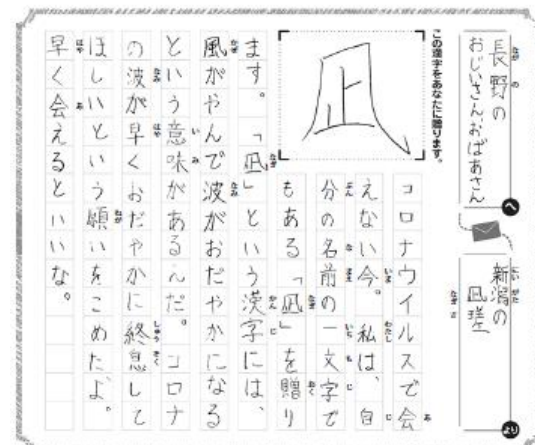 長野の
おじいさん、おばあさん
へ
新潟の
凪瑳
より
この漢字をあなたに贈ります。
凪
コロナウイルスで会
えない今。私は、自
分の名前の一文字で
もある「凪」を贈り
ます。「凪」という漢字には、
風がやんで波がおだやかになる
という意味があるんだ。コロナ
の波が早くおだやかに終息して
ほしいという願いをこめたよ。
早く会えるといいな。